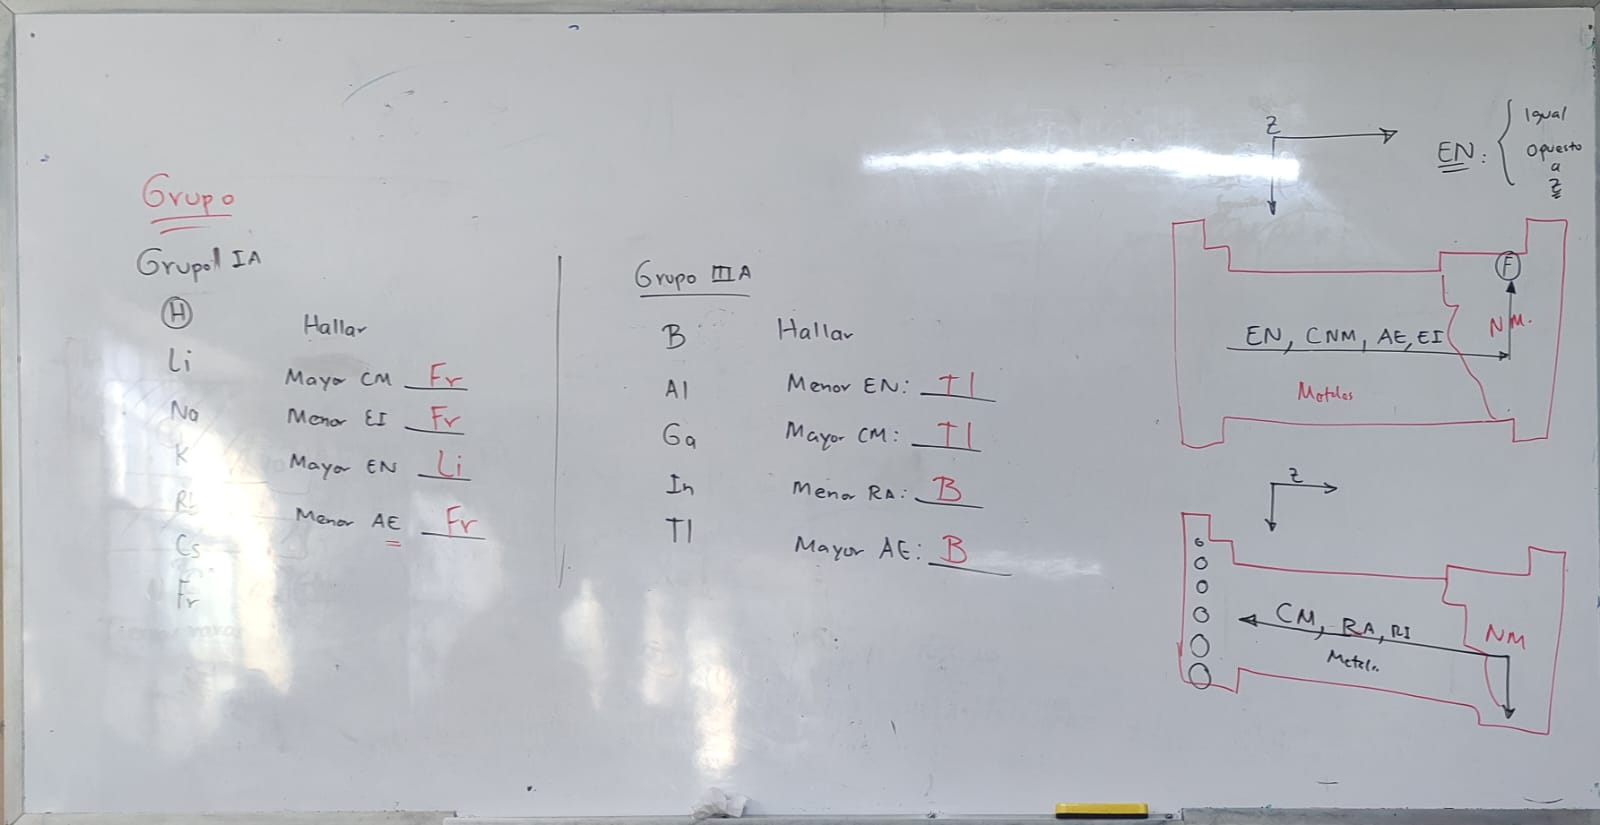 Grupo
Grupo IA
H
Li
Na
K
Rb
Cs
Fr
Hallar
Mayor CM Fr
Menor EI Fr
Mayor EN Li
Menor AE Fr
Grupo IIIA
B
Al
Ga
In
Tl
Hallar
Menor EN: Tl
Mayor CM: Tl
Menor RA: B
Mayor AE: B
Z
EN: Igual
opuesto
a
Z
F
EN, CNM, AE, EI
N.M.
Metales
Z
CM, RA, RI
NM